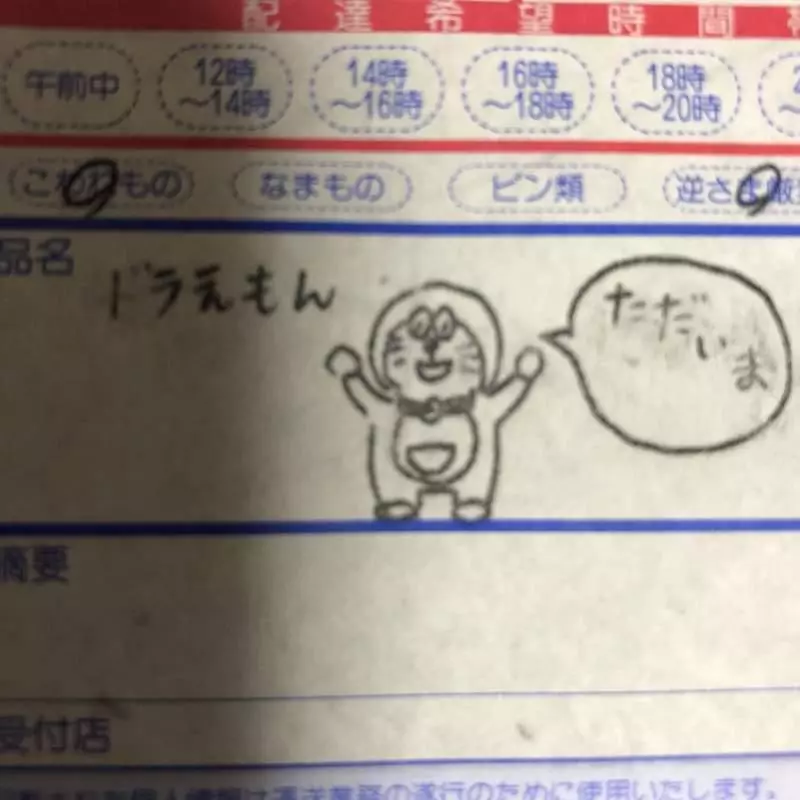 配達希望時間帯
午前中 12時～14時 14時～16時 16時～18時 18時～20時
こわれもの なまもの ビン類 逆さま厳禁
品名 ドラえもん ただいま
摘要
受付店
個人情報は運送業務の遂行のために使用いたします。